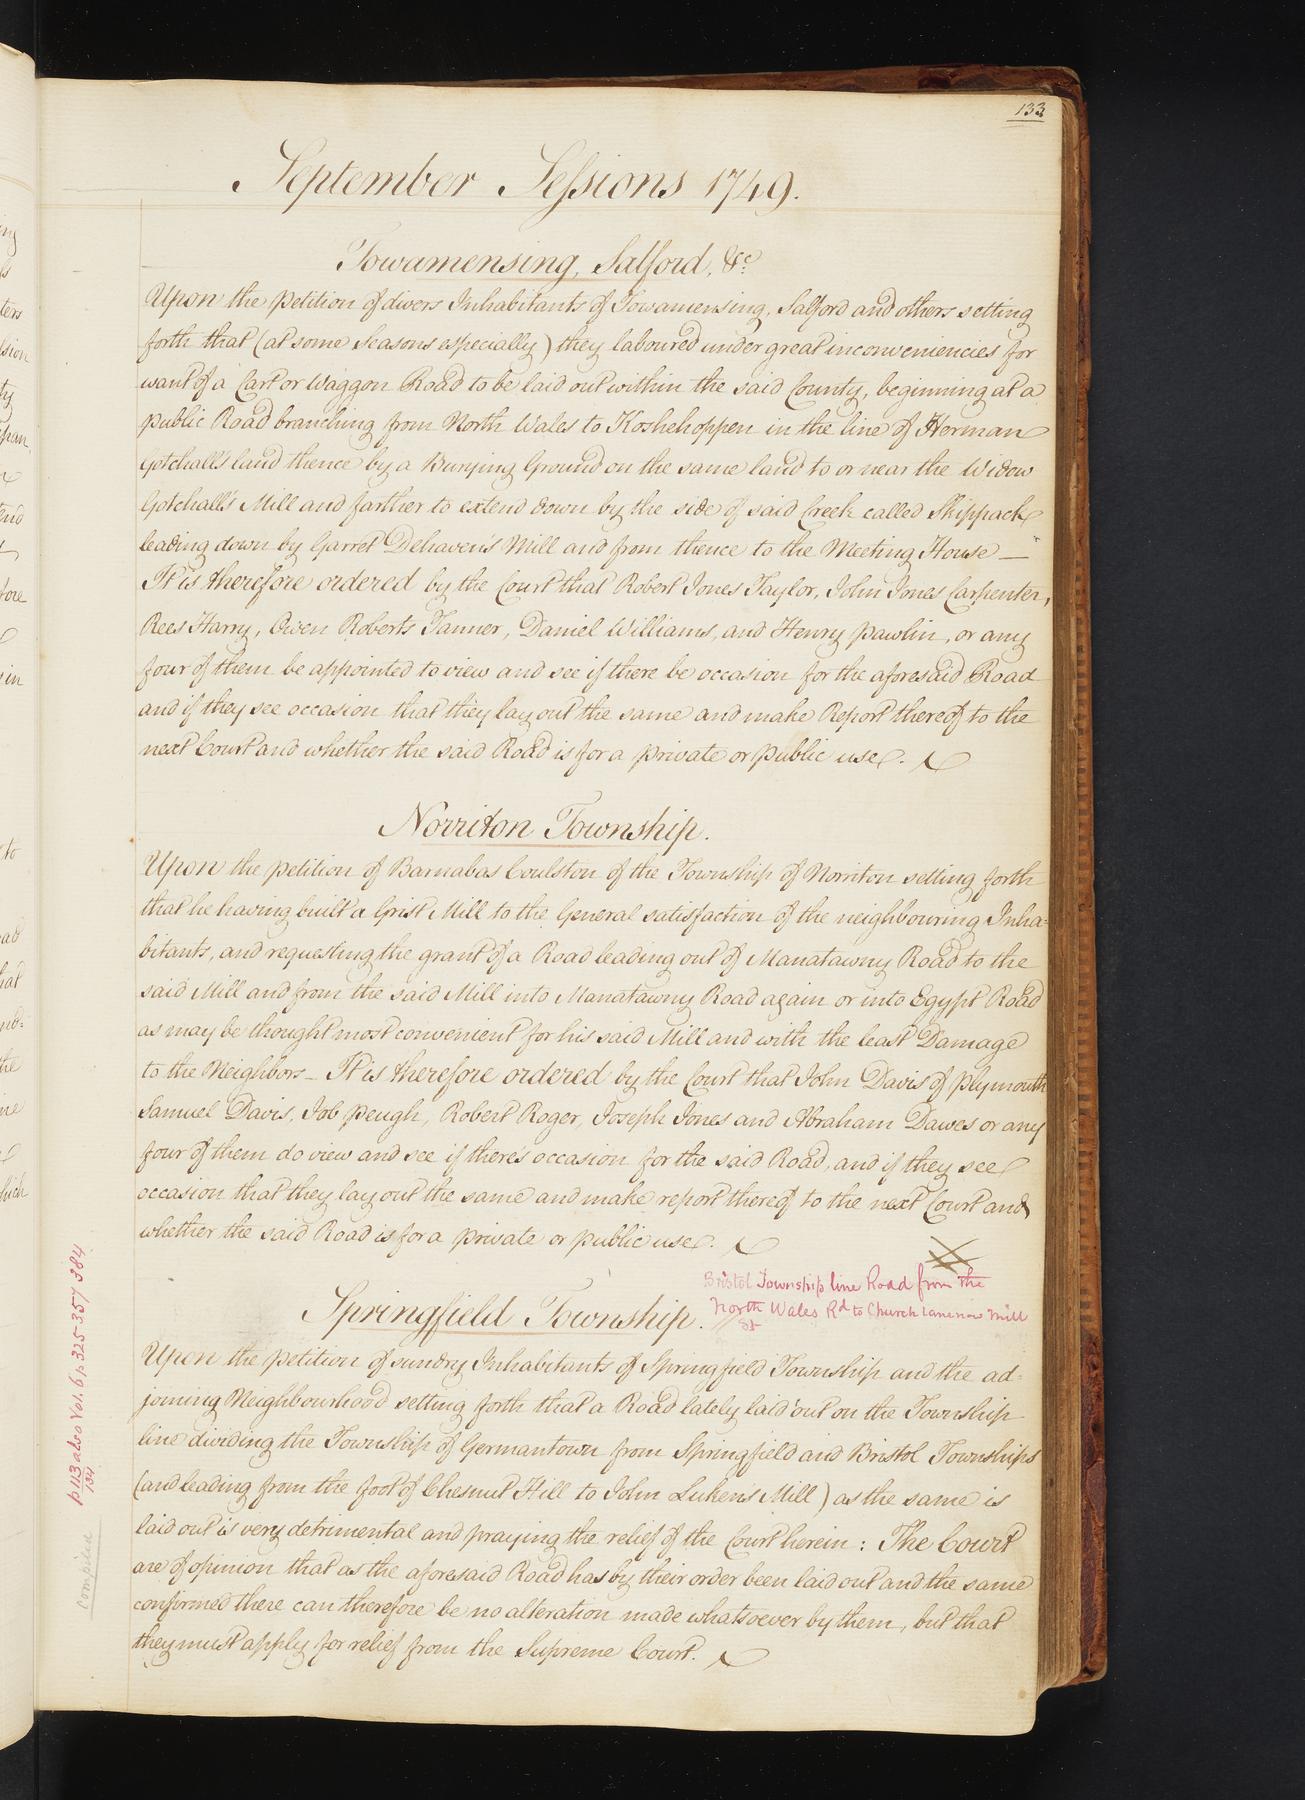 133
September Sessions 1749.
Towamensing, Salford, &c.
Upon the petition of divers Inhabitants of Towamensing, Salford and others setting
forth that (at some Seasons especially) they laboured under great inconveniencies for
want of a Cart or Waggon Road to be laid out within the said County, beginning at a
public Road branching from North Wales to Koshehoppen in the line of Herman
Gotchall's land thence by a Burying Ground on the same land to or near the Widow
Gotchall's Mill and farther to extend down by the side of said Creek called Skippack
leading down by Garret Dehaven's Mill and from thence to the Meeting House —
It is therefore ordered by the Court that Robert Jones Taylor, John Jones Carpenter,
Rees Harry, Owen Roberts Tanner, Daniel Williams, and Henry Pawlin, or any
four of them be appointed to view and see if there be occasion for the aforesaid Road
and if they see occasion that they lay out the same and make Report thereof to the
next Court and whether the said Road is for a private or public use.
Norriton Township.
Upon the petition of Barnabas Coulston of the Township of Norriton setting forth
that he having built a Grist Mill to the General satisfaction of the neighbouring Inha=
bitants, and requesting the grant of a Road leading out of Manatawny Road to the
said Mill and from the said Mill into Manatawny Road again or into Egypt Road
as may be thought most convenient for his said Mill and with the least Damage
to the Neighbors — It is therefore ordered by the Court that John Davis of Plymouth
Samuel Davis, Job Peugh, Robert Roger, Joseph Jones and Abraham Dawes or any
four of them do view and see if there's occasion for the said Road, and if they see
occasion that they lay out the same and make report thereof to the next Court and
whether the said Road is for a private or public use.
Bristol Township line Road from the
North Wales Rd to Church Lane now Mill
St
Springfield Township.
Upon the petition of sundry Inhabitants of Springfield Township and the ad=
joining Neighbourhood setting forth that a Road lately laid out on the Township
line dividing the Township of Germantown from Springfield and Bristol Townships
(and leading from the foot of Chesnut Hill to John Luken's Mill) as the same is
laid out is very detrimental and praying the relief of the Court herein: The Court
are of opinion that as the aforesaid Road has by their order been laid out and the same
confirmed there can therefore be no alteration made whatsoever by them, but that
they must apply for relief from the Supreme Court.
p 113 also Vol. 6 p 325-357 384
134
compiled